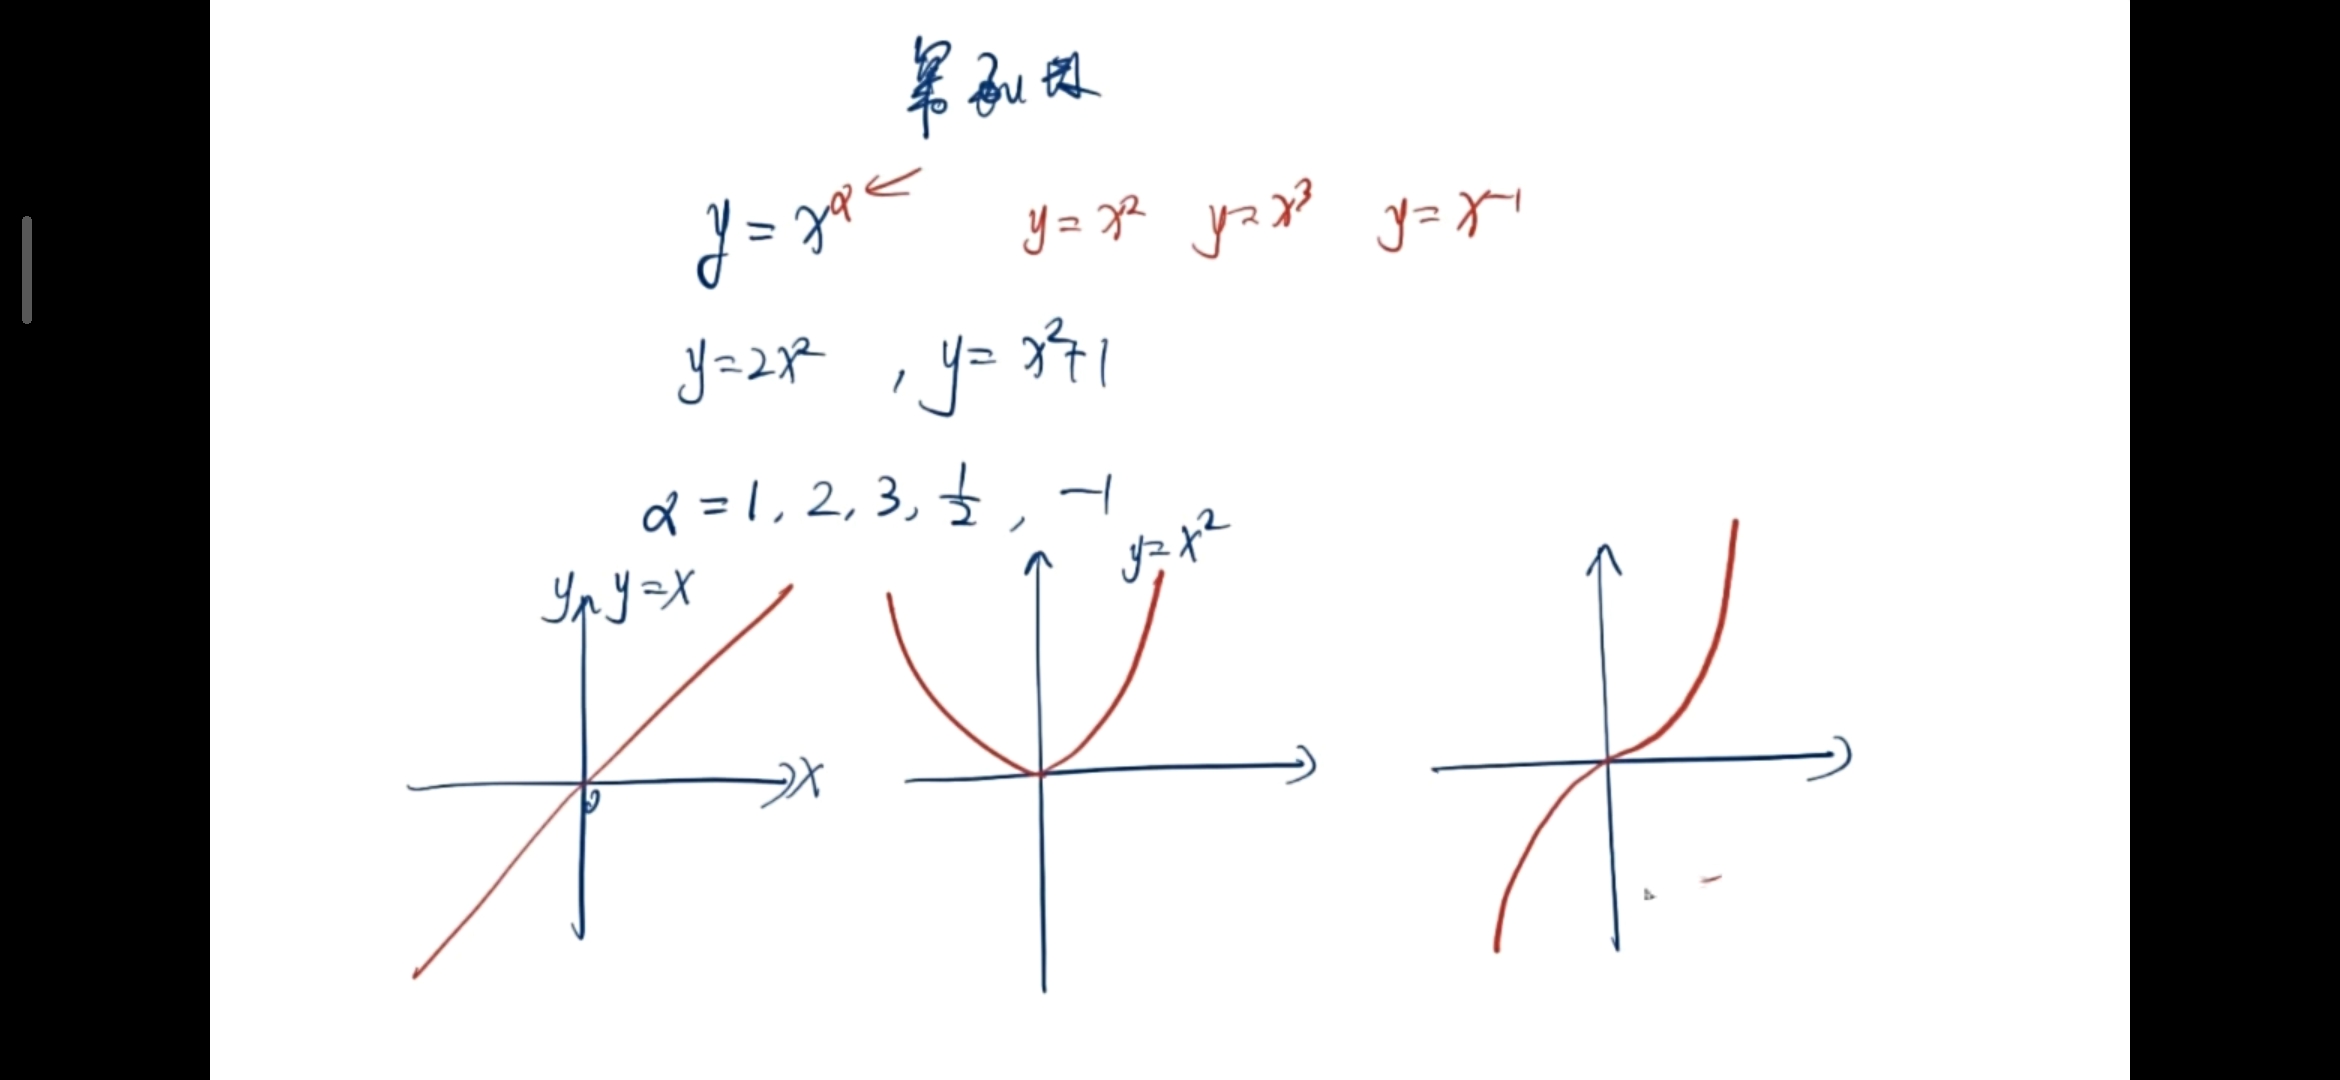 y = x^α ← y = x² y = x³ y = x⁻¹
y = 2x² , y = x²+1
α = 1, 2, 3, 1/2, -1
y y = x
y = x²
x
0